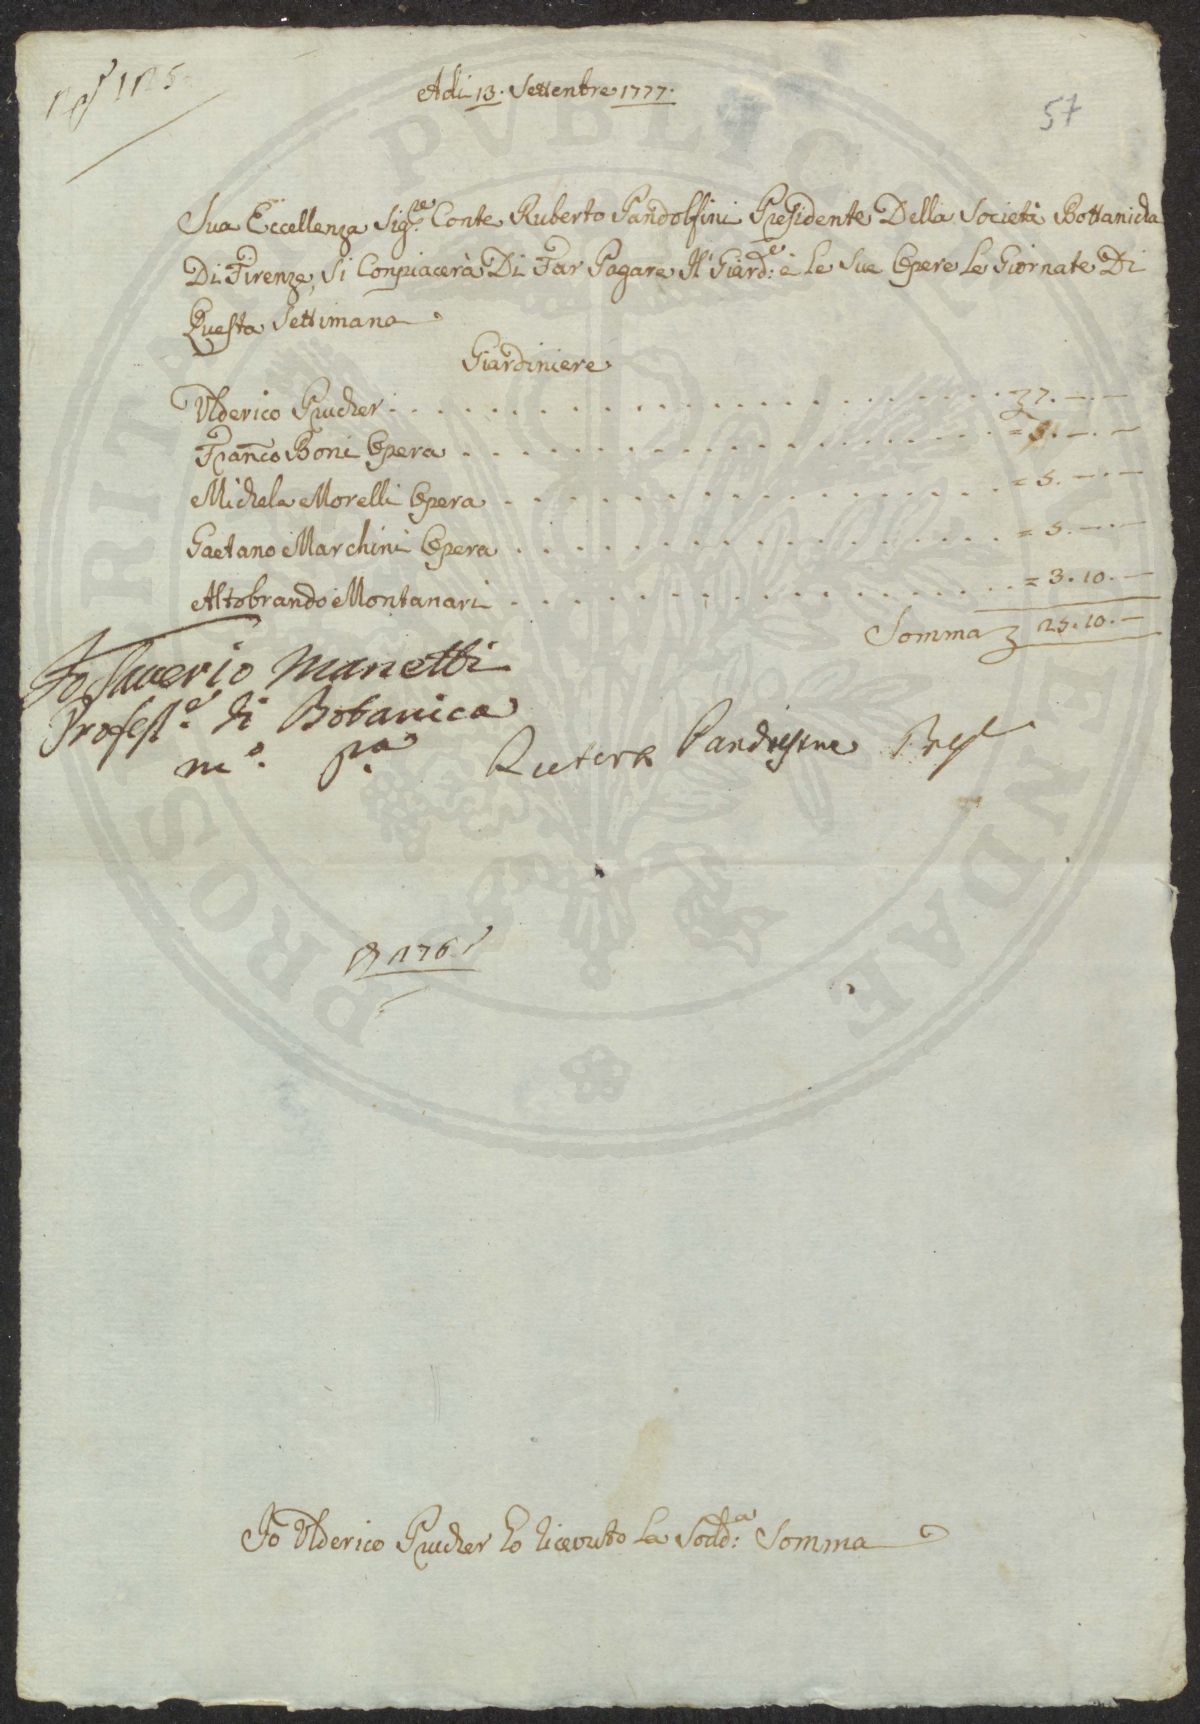 Adi 13. Settenbre 1777.
57
Sua Eccellenza Sig.re Conte Ruberto Pandolfini Presidente Della Società Bottanicha
Di Firenze, Si Conpiacerà Di Far Pagare Il Giard:e è le Sue Opere Le Giornate Di
Questa Settimana
Giardiniere
Ulderico Prucher 7.—.—
Franco Boni Opera = 5.—.—
Michele Morelli Opera = 5.—.—
Gaetano Marchini Opera = 5.—.—
Altobrando Montanari = 3.10.—
Somma 25.10.—
Io Saverio Manetti
Profess.e di Botanica
m.o p.a
Pandolfini
176
Io Ulderico Prucher ho ricevuto La Sodd:a Somma
PUBLICAE PROSPERITATI